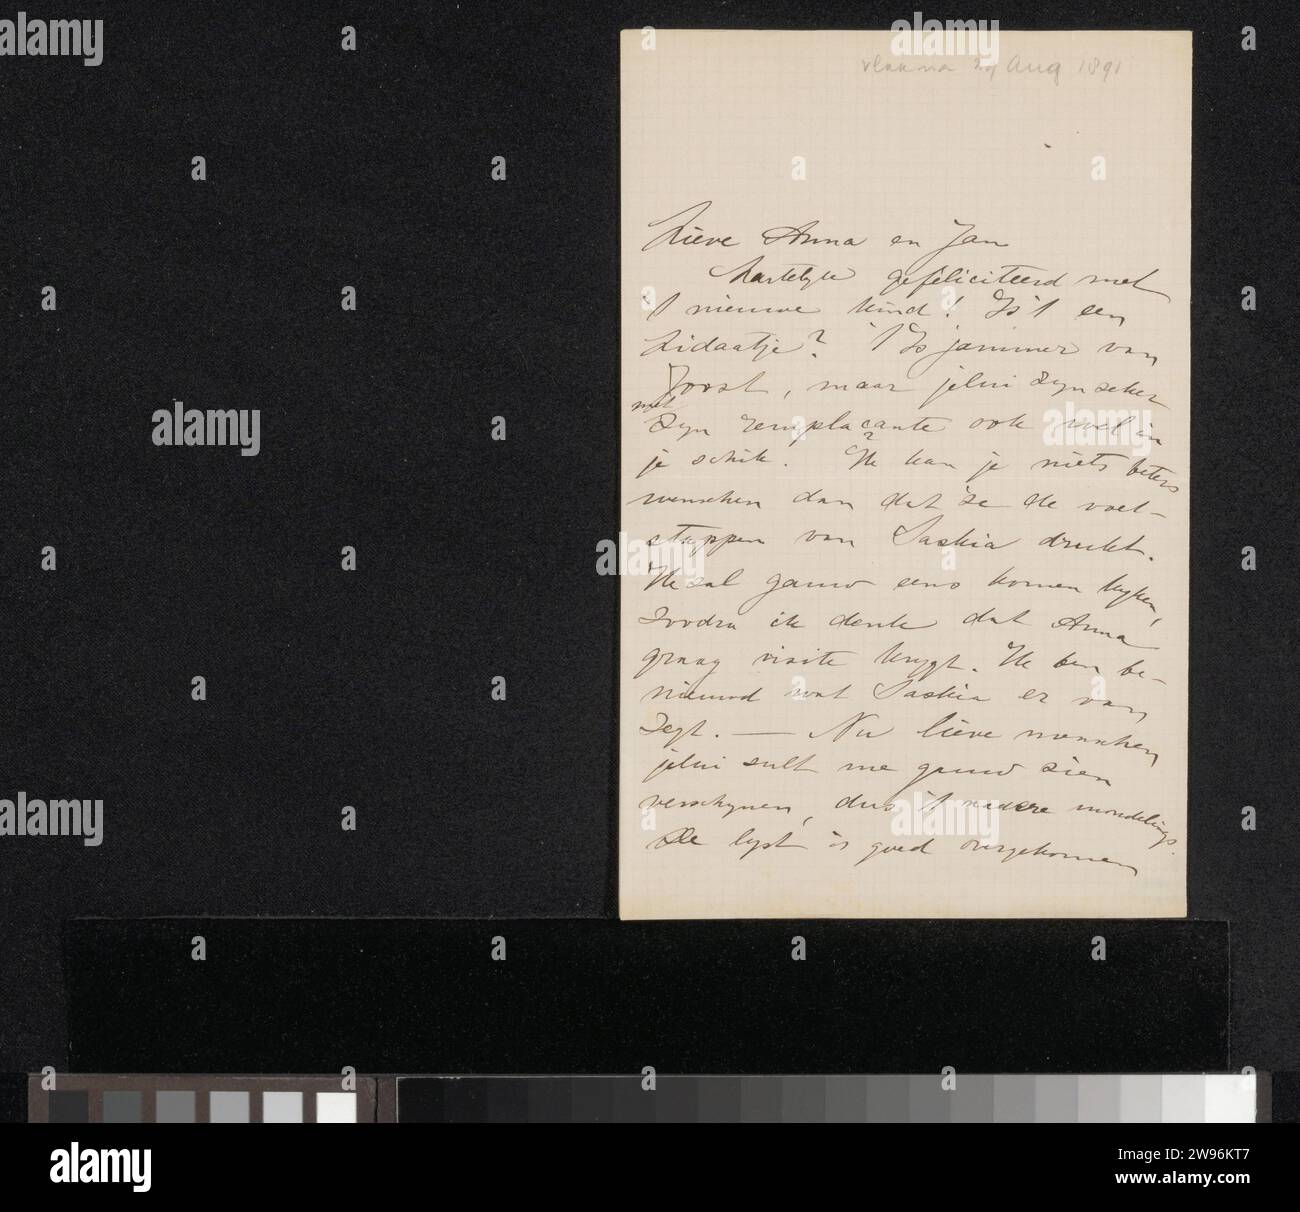 29 Aug 1891
Lieve Anna en Jan
hartelyk gefeliciteerd met
't nieuwe kind! Is 't een
Lidaatje? 't Is jammer van
Joost, maar jelui zyn zeker
met
zyn remplaçante ook wel in
je schik. Ik kan je niets beters
wenschen dan dat ze de voet-
stappen van Saskia drukt.
Ik zal gauw eens komen kyken,
zoodra ik denk dat Anna
graag visite krygt. Ik ben be-
nieuwd wat Saskia er van
zegt. — Nu lieve menschen
jelui zult me gauw zien
verschynen, dus 't nadere mondelings.
De lyst is goed overgekomen
alamy
Image ID: 2W96KT7
www.alamy.com